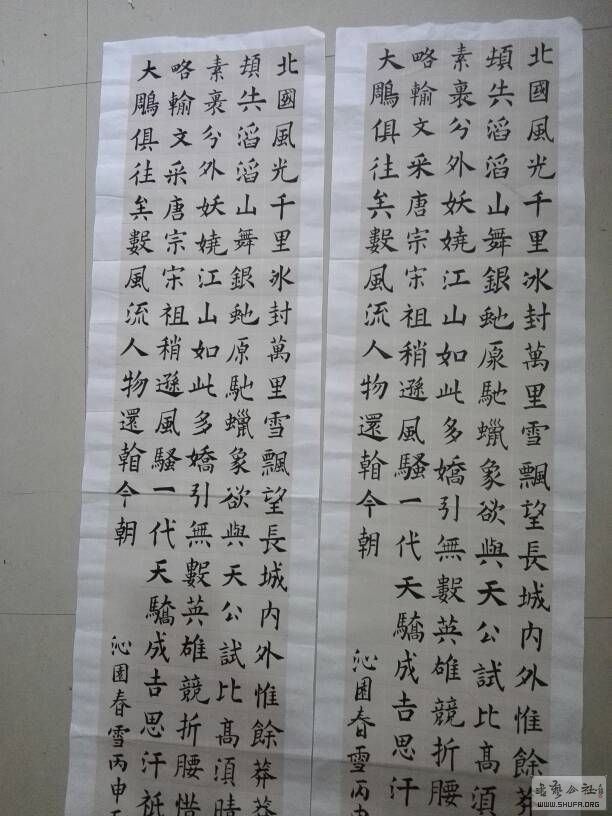 北國風光千里冰封萬里雪飄望長城內外惟餘莽
頓失滔滔山舞銀蛇原馳蠟象欲與天公試比高須
素裹分外妖嬈江山如此多嬌引無數英雄競折腰
略輸文采唐宗宋祖稍遜風騷一代天驕成吉思汗
大鵰俱往矣數風流人物還看今朝
沁園春雪丙申
北國風光千里冰封萬里雪飄望長城內外惟餘莽莽
頓失滔滔山舞銀蛇原馳蠟象欲與天公試比高須晴
素裹分外妖嬈江山如此多嬌引無數英雄競折腰惜
略輸文采唐宗宋祖稍遜風騷一代天驕成吉思汗祗
大鵰俱往矣數風流人物還看今朝
沁園春雪丙申
書藝公社
WWW.SHUFA.ORG